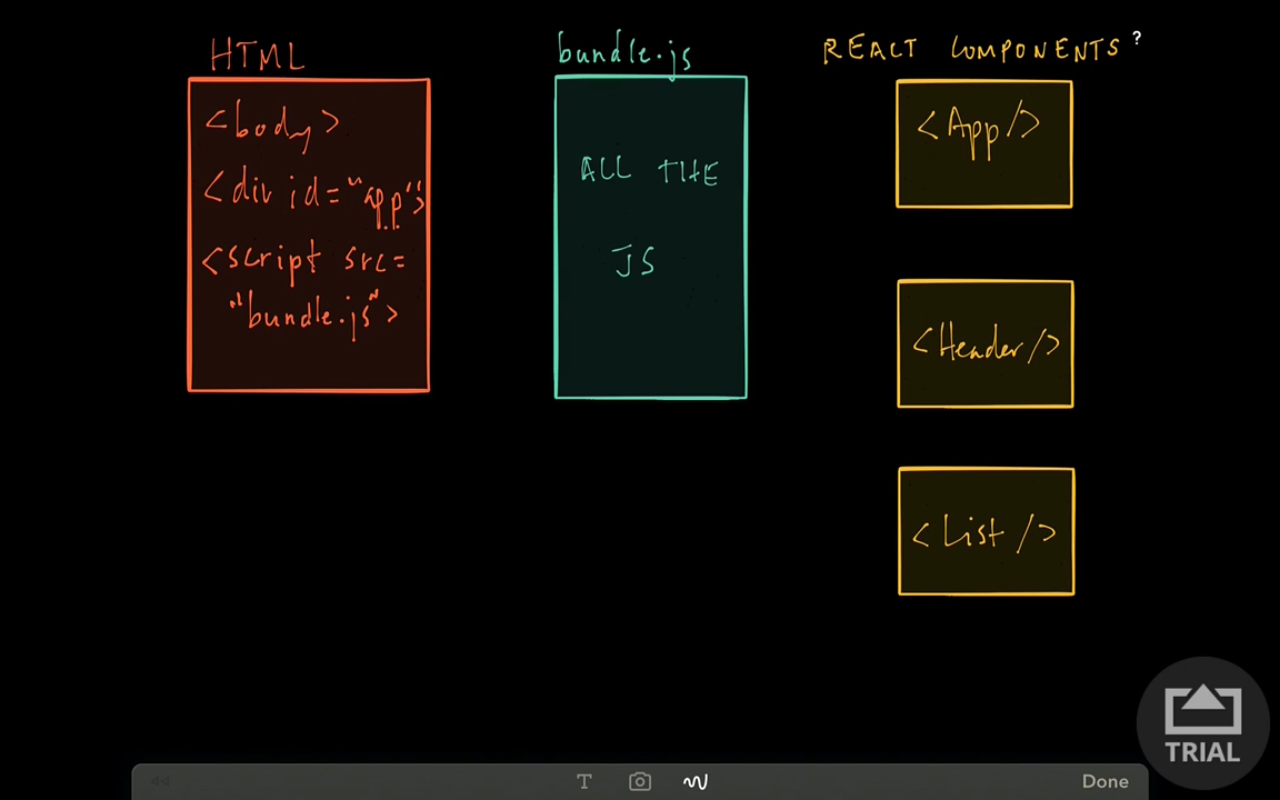 HTML
<body>
<div id="app">
<script src=
"bundle.js">
bundle.js
ALL THE
JS
REACT COMPONENTS ?
<App/>
<Header/>
<List/>
TRIAL
T
Done